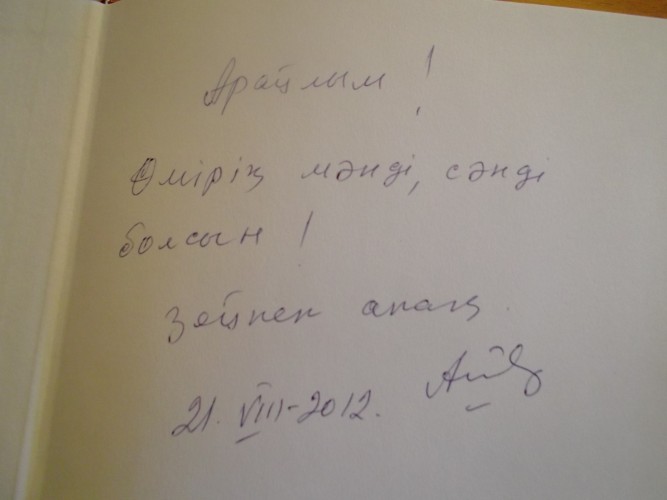 Арайлым!
Өмірің мәнді, сәнді
болсын!
Зейнеп апаң.
21. VIII-2012.